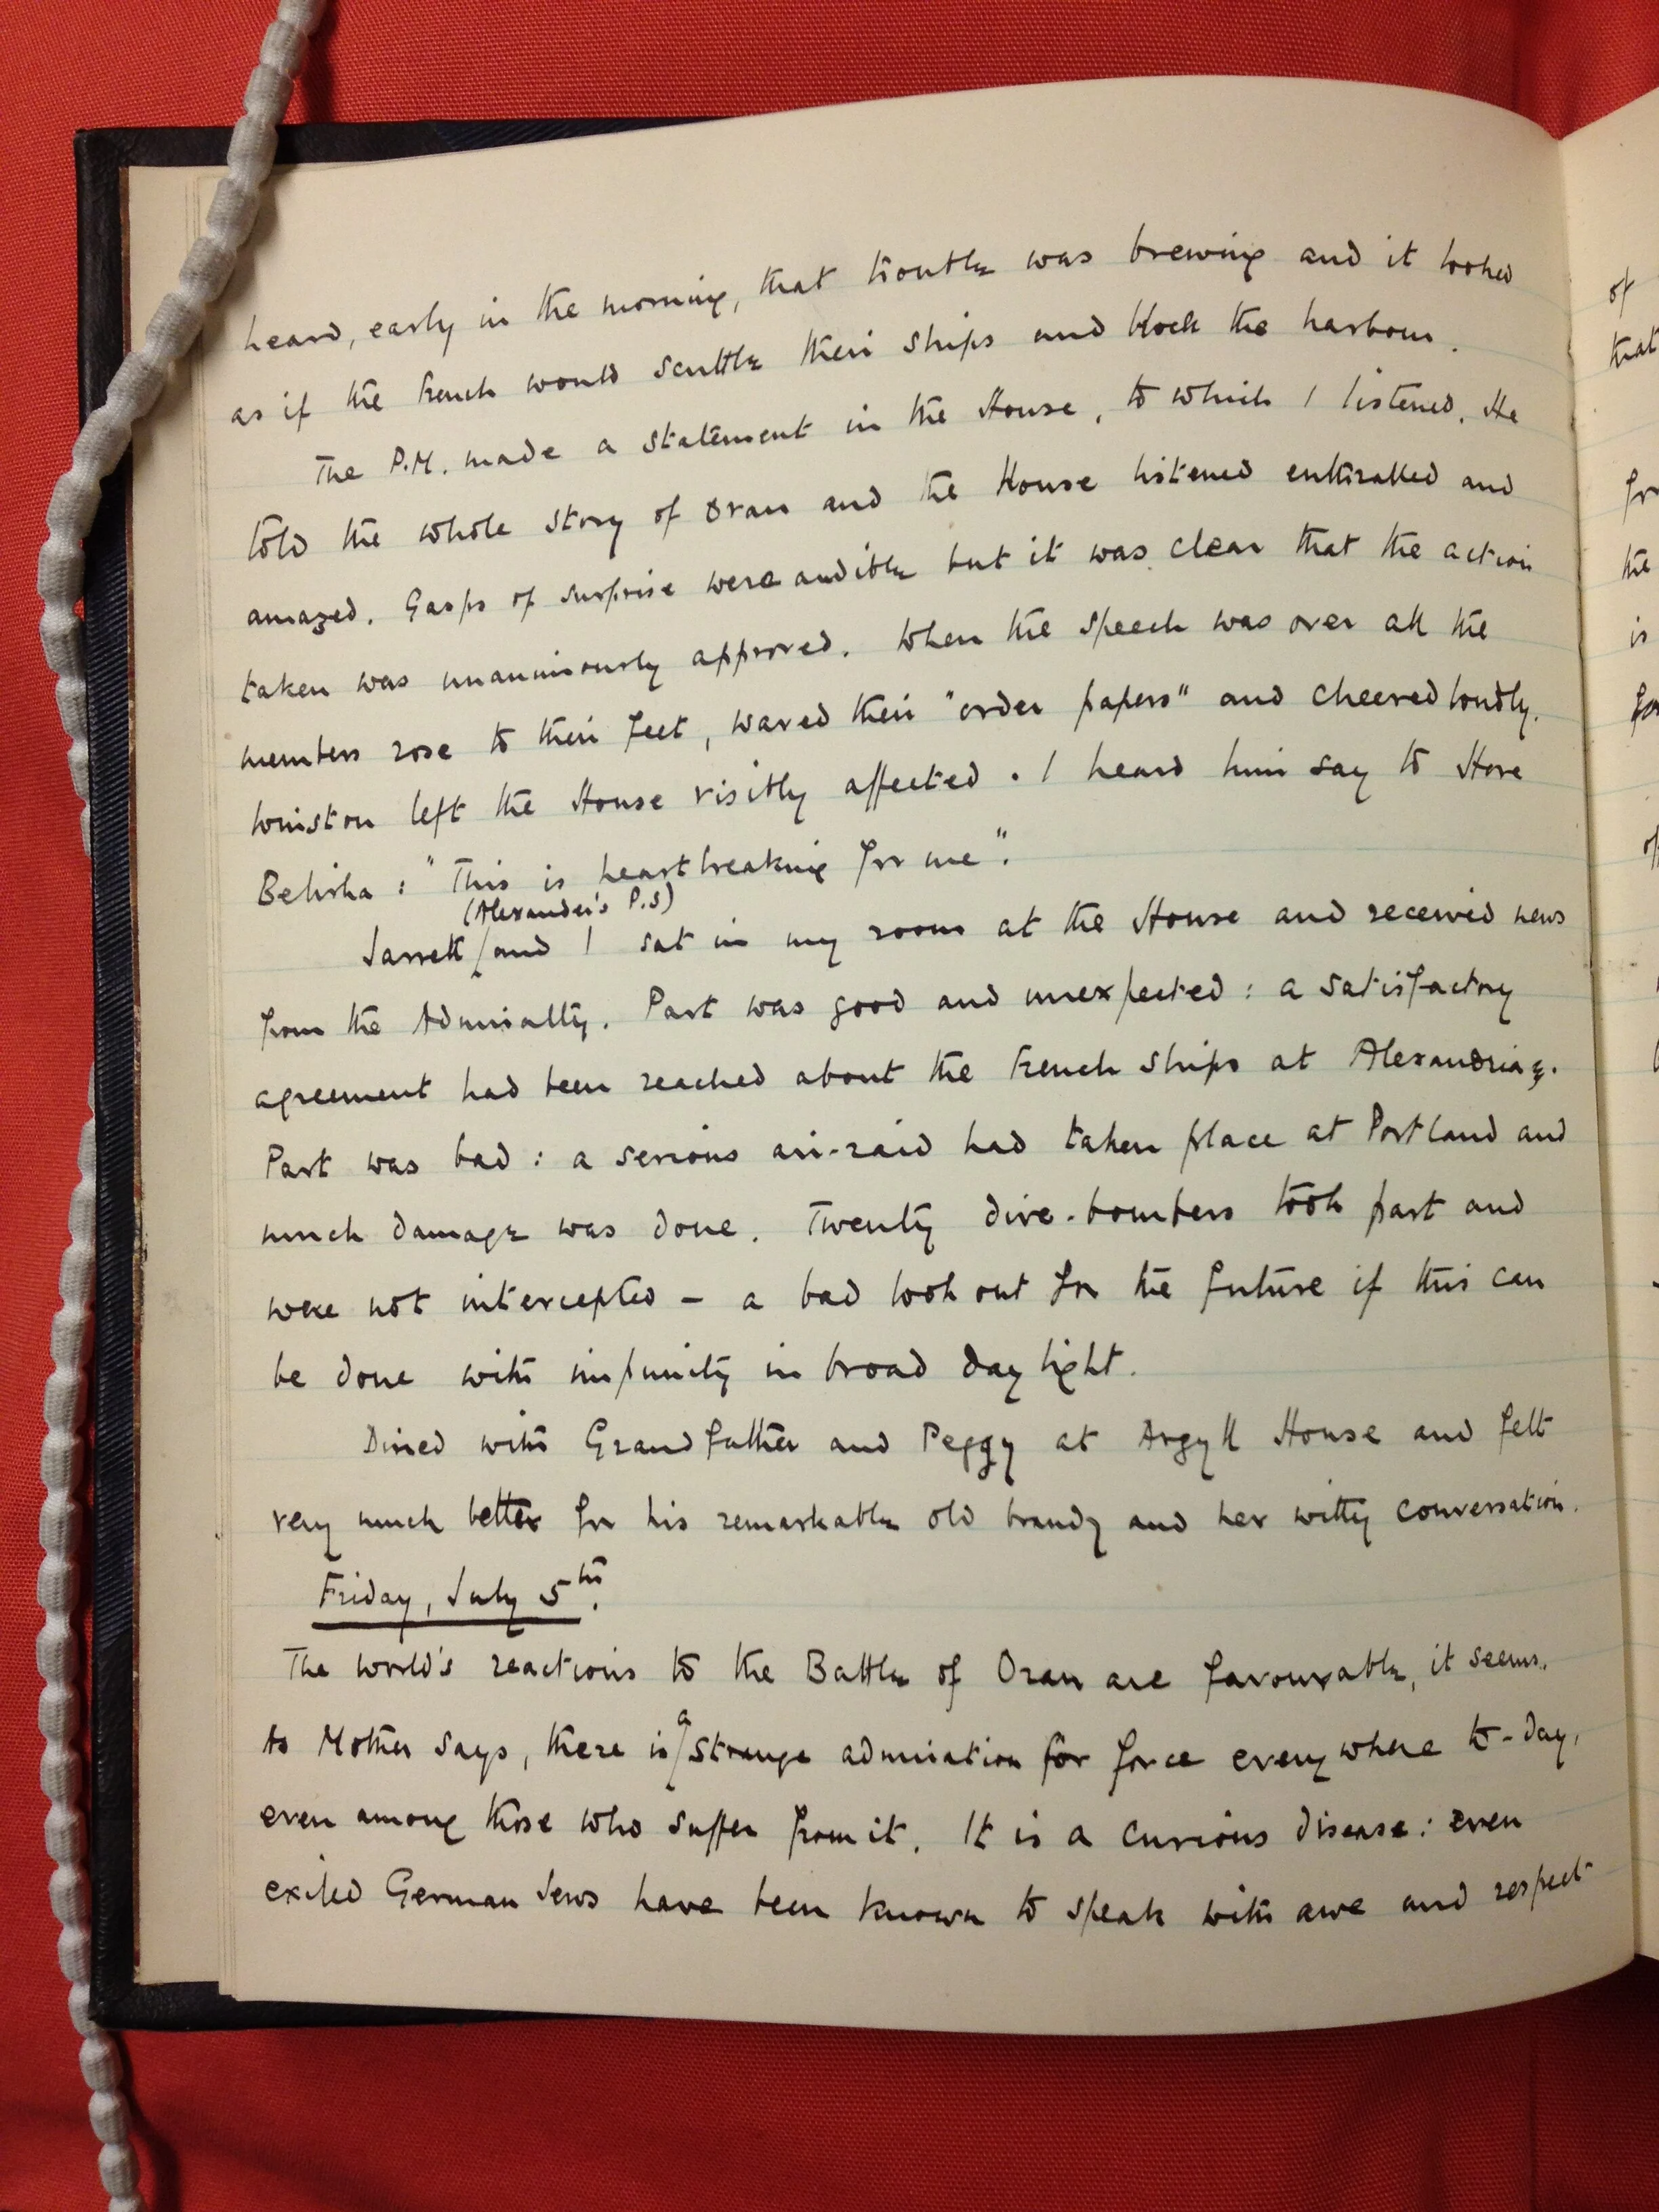 heard, early in the morning, that trouble was brewing and it looked
as if the French would scuttle their ships and block the harbour.
The P.M. made a statement in the House, to which I listened. He
told the whole story of Oran and the House listened enthralled and
amazed. Gasps of surprise were audible but it was clear that the action
taken was unanimously approved. When the speech was over all the
members rose to their feet, waved their "order papers" and cheered loudly.
Winston left the House visibly affected. I heard him say to Hore
Belisha: "This is heartbreaking for me".
(Alexander's P.S)
Jarrett / and I sat in my room at the House and received news
from the Admiralty. Part was good and unexpected: a satisfactory
agreement had been reached about the French ships at Alexandria.
Part was bad: a serious air-raid had taken place at Portland and
much damage was done. Twenty dive-bombers took part and
were not intercepted - a bad look out for the future if this can
be done with impunity in broad daylight.
Dined with Grandfather and Peggy at Argyll House and felt
very much better for his remarkable old brandy and her witty conversation.
Friday, July 5th.
The world's reactions to the Battle of Oran are favourable, it seems.
As Mother says, there is a strange admiration for force everywhere to-day,
even among those who suffer from it. It is a curious disease: even
exiled German Jews have been known to speak with awe and respect
of
that
the
is
of